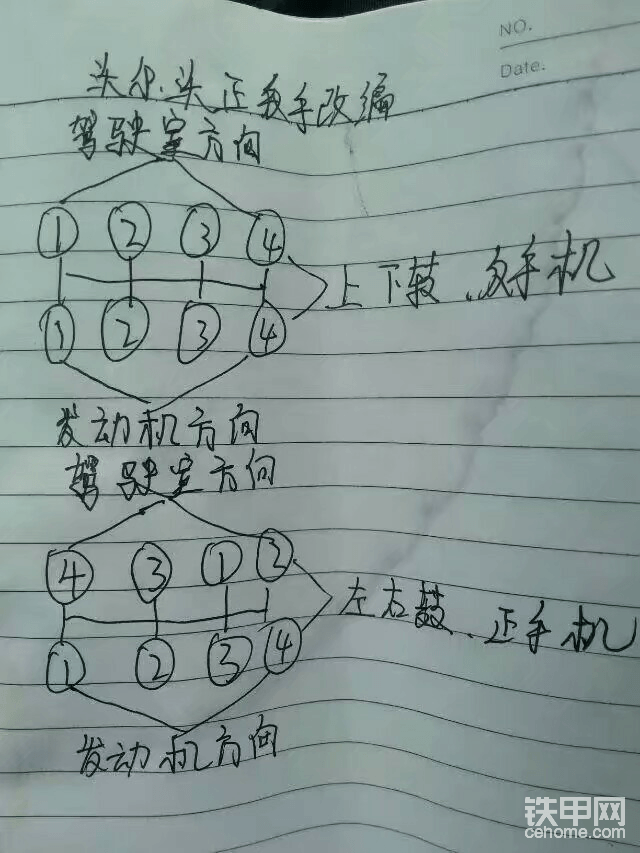 NO.
Date.
头尔.头正反手改编
驾驶室方向
① ② ③ ④
上下鼓.反手机
① ② ③ ④
发动机方向
驾驶室方向
④ ③ ① ②
左右鼓.正手机
① ② ③ ④
发动机方向
铁甲网
cehome.com